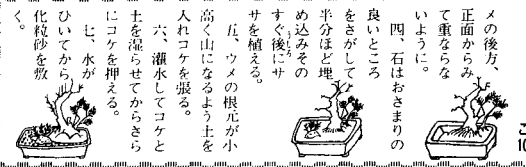 メの後方、
正面からみ
て重ならな
いように。
四、石はおさまりの
良いところ
をさがして
半分ほど埋
め込みその
すぐ後にサ
うしろ
サを植える。
五、ウメの根元が小
高く山になるよう土を
入れコケを張る。
六、灌水してコケと
土を湿らせてからさら
にコケを押える。
七、水が
ひいてから
化粧砂を敷
く。